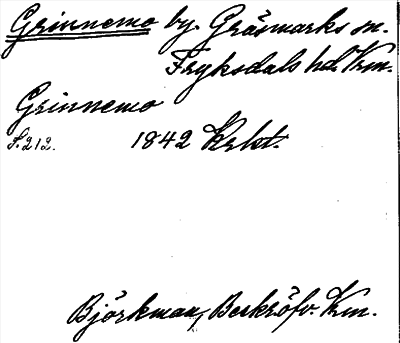 Grinnemo by. Gräsmarks sn.
Fryksdals hd. Vrm.
Grinnemo
S. 212. 1842 Krkt.
Björkman, Beskrifv. Vrm.